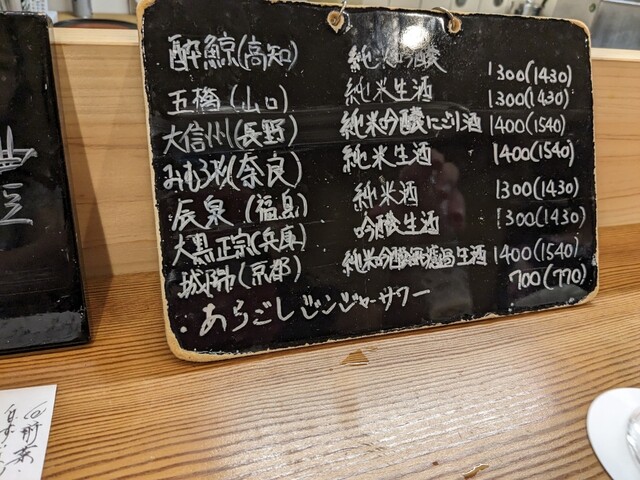 酔鯨(高知) 純米吟醸 1300(1430)
五橋(山口) 純米生酒 1300(1430)
大信州(長野) 純米吟醸にごり酒 1400(1540)
みむろ杉(奈良) 純米生酒 1400(1540)
辰泉(福島) 純米酒 1300(1430)
大黒正宗(兵庫) 吟醸生酒 1300(1430)
(京都) 純米吟醸無濾過生酒 1400(1540)
・あらごしジンジャーサワー 700(770)